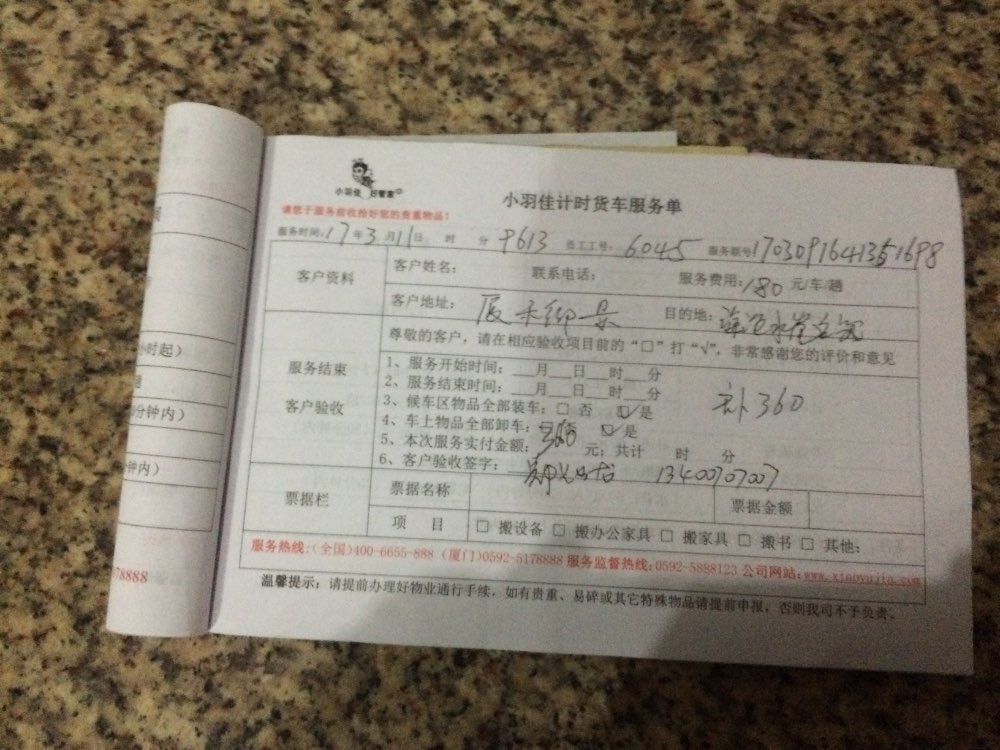 小羽佳 好管家
小羽佳计时货车服务单
请您于服务前收拾好您的贵重物品！
服务时间：17年3月11日 时 分 9613 员工工号：6045 服务联号 1703091641351698
客户资料
客户姓名： 联系电话： 服务费用：180 元/车/趟
客户地址： 目的地：
服务结束
客户验收
尊敬的客户，请在相应验收项目前的“□”打“√”，非常感谢您的评价和意见
1、服务开始时间：___月___日___时___分
2、服务结束时间：___月___日___时___分
3、候车区物品全部装车：□ 否 ☑是
补360
4、车上物品全部卸车：□否 ☑是
5、本次服务实付金额：360 元；共计 时 分
6、客户验收签字： 13400707007
票据栏
票据名称 票据金额
项 目 □ 搬设备 □ 搬办公家具 □ 搬家具 □ 搬书 □ 其他：
服务热线：（全国）400-6655-888（厦门）0592-5178888 服务监督热线：0592-5888123 公司网站：www.xiaoyujia.com
温馨提示：请提前办理好物业通行手续，如有贵重、易碎或其它特殊物品请提前申报，否则我司不予负责。
小时起）
分钟内）
钟内）
78888